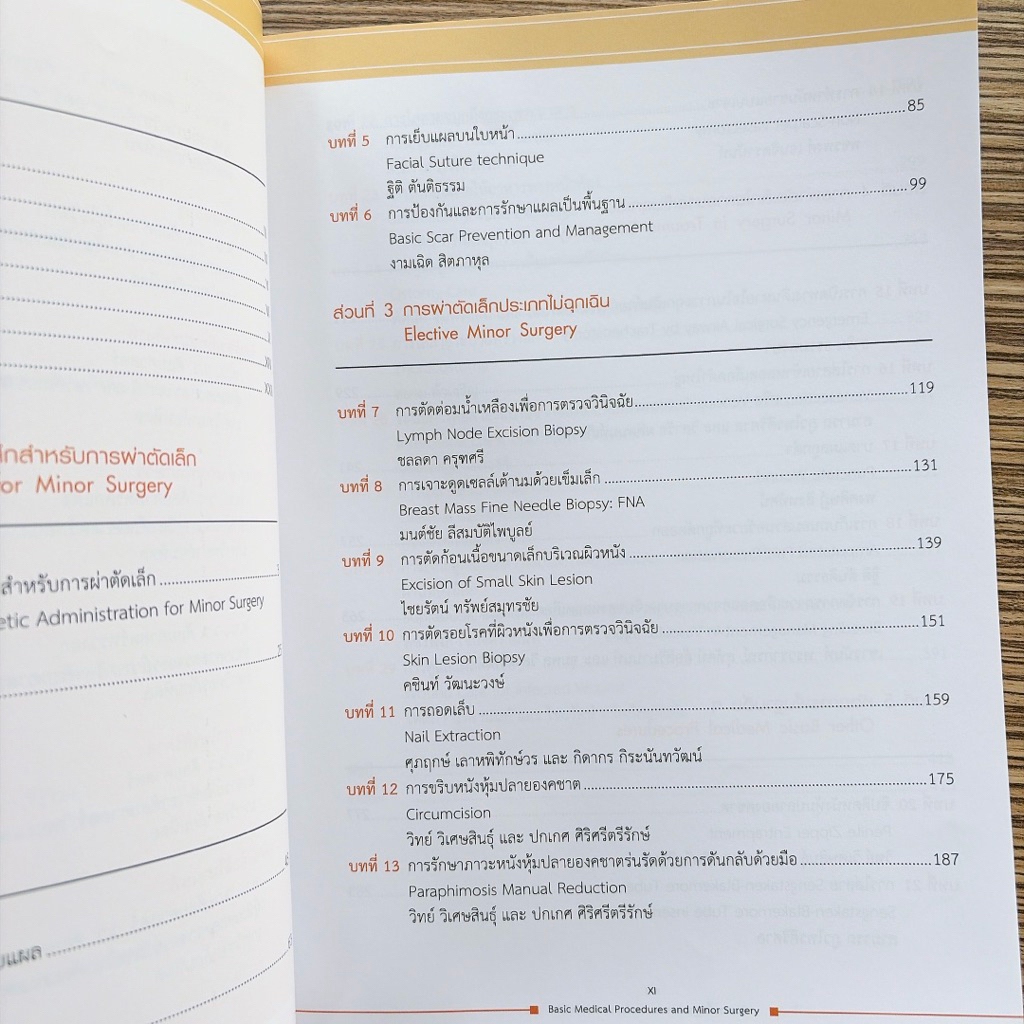 ล็กสำหรับการผ่าตัดเล็ก
or Minor Surgery
สำหรับการผ่าตัดเล็ก
etic Administration for Minor Surgery
บทที่ 5 การเย็บแผลบนใบหน้า 85
Facial Suture technique
ฐิติ ตันติธรรม
บทที่ 6 การป้องกันและการรักษาแผลเป็นพื้นฐาน 99
Basic Scar Prevention and Management
งามเฉิด สิตภาหุล
ส่วนที่ 3 การผ่าตัดเล็กประเภทไม่ฉุกเฉิน
Elective Minor Surgery
บทที่ 7 การตัดต่อมน้ำเหลืองเพื่อการตรวจวินิจฉัย 119
Lymph Node Excision Biopsy
ชลลดา ครุฑศรี
บทที่ 8 การเจาะดูดเซลล์เต้านมด้วยเข็มเล็ก 131
Breast Mass Fine Needle Biopsy: FNA
มนต์ชัย ลีสมบัติไพบูลย์
บทที่ 9 การตัดก้อนเนื้อขนาดเล็กบริเวณผิวหนัง 139
Excision of Small Skin Lesion
ไชยรัตน์ ทรัพย์สมุทรชัย
บทที่ 10 การตัดรอยโรคที่ผิวหนังเพื่อการตรวจวินิจฉัย 151
Skin Lesion Biopsy
คชินท์ วัฒนะวงษ์
บทที่ 11 การถอดเล็บ 159
Nail Extraction
ศุภฤกษ์ เลาหพิทักษ์วร และ กิดากร กิระนันทวัฒน์
บทที่ 12 การขริบหนังหุ้มปลายองคชาต 175
Circumcision
วิทย์ วิเศษสินธุ์ และ ปกเกศ ศิริศรีตรีรักษ์
บทที่ 13 การรักษาภาวะหนังหุ้มปลายองคชาตร่นรัดด้วยการดันกลับด้วยมือ 187
Paraphimosis Manual Reduction
วิทย์ วิเศษสินธุ์ และ ปกเกศ ศิริศรีตรีรักษ์
XI
Basic Medical Procedures and Minor Surgery